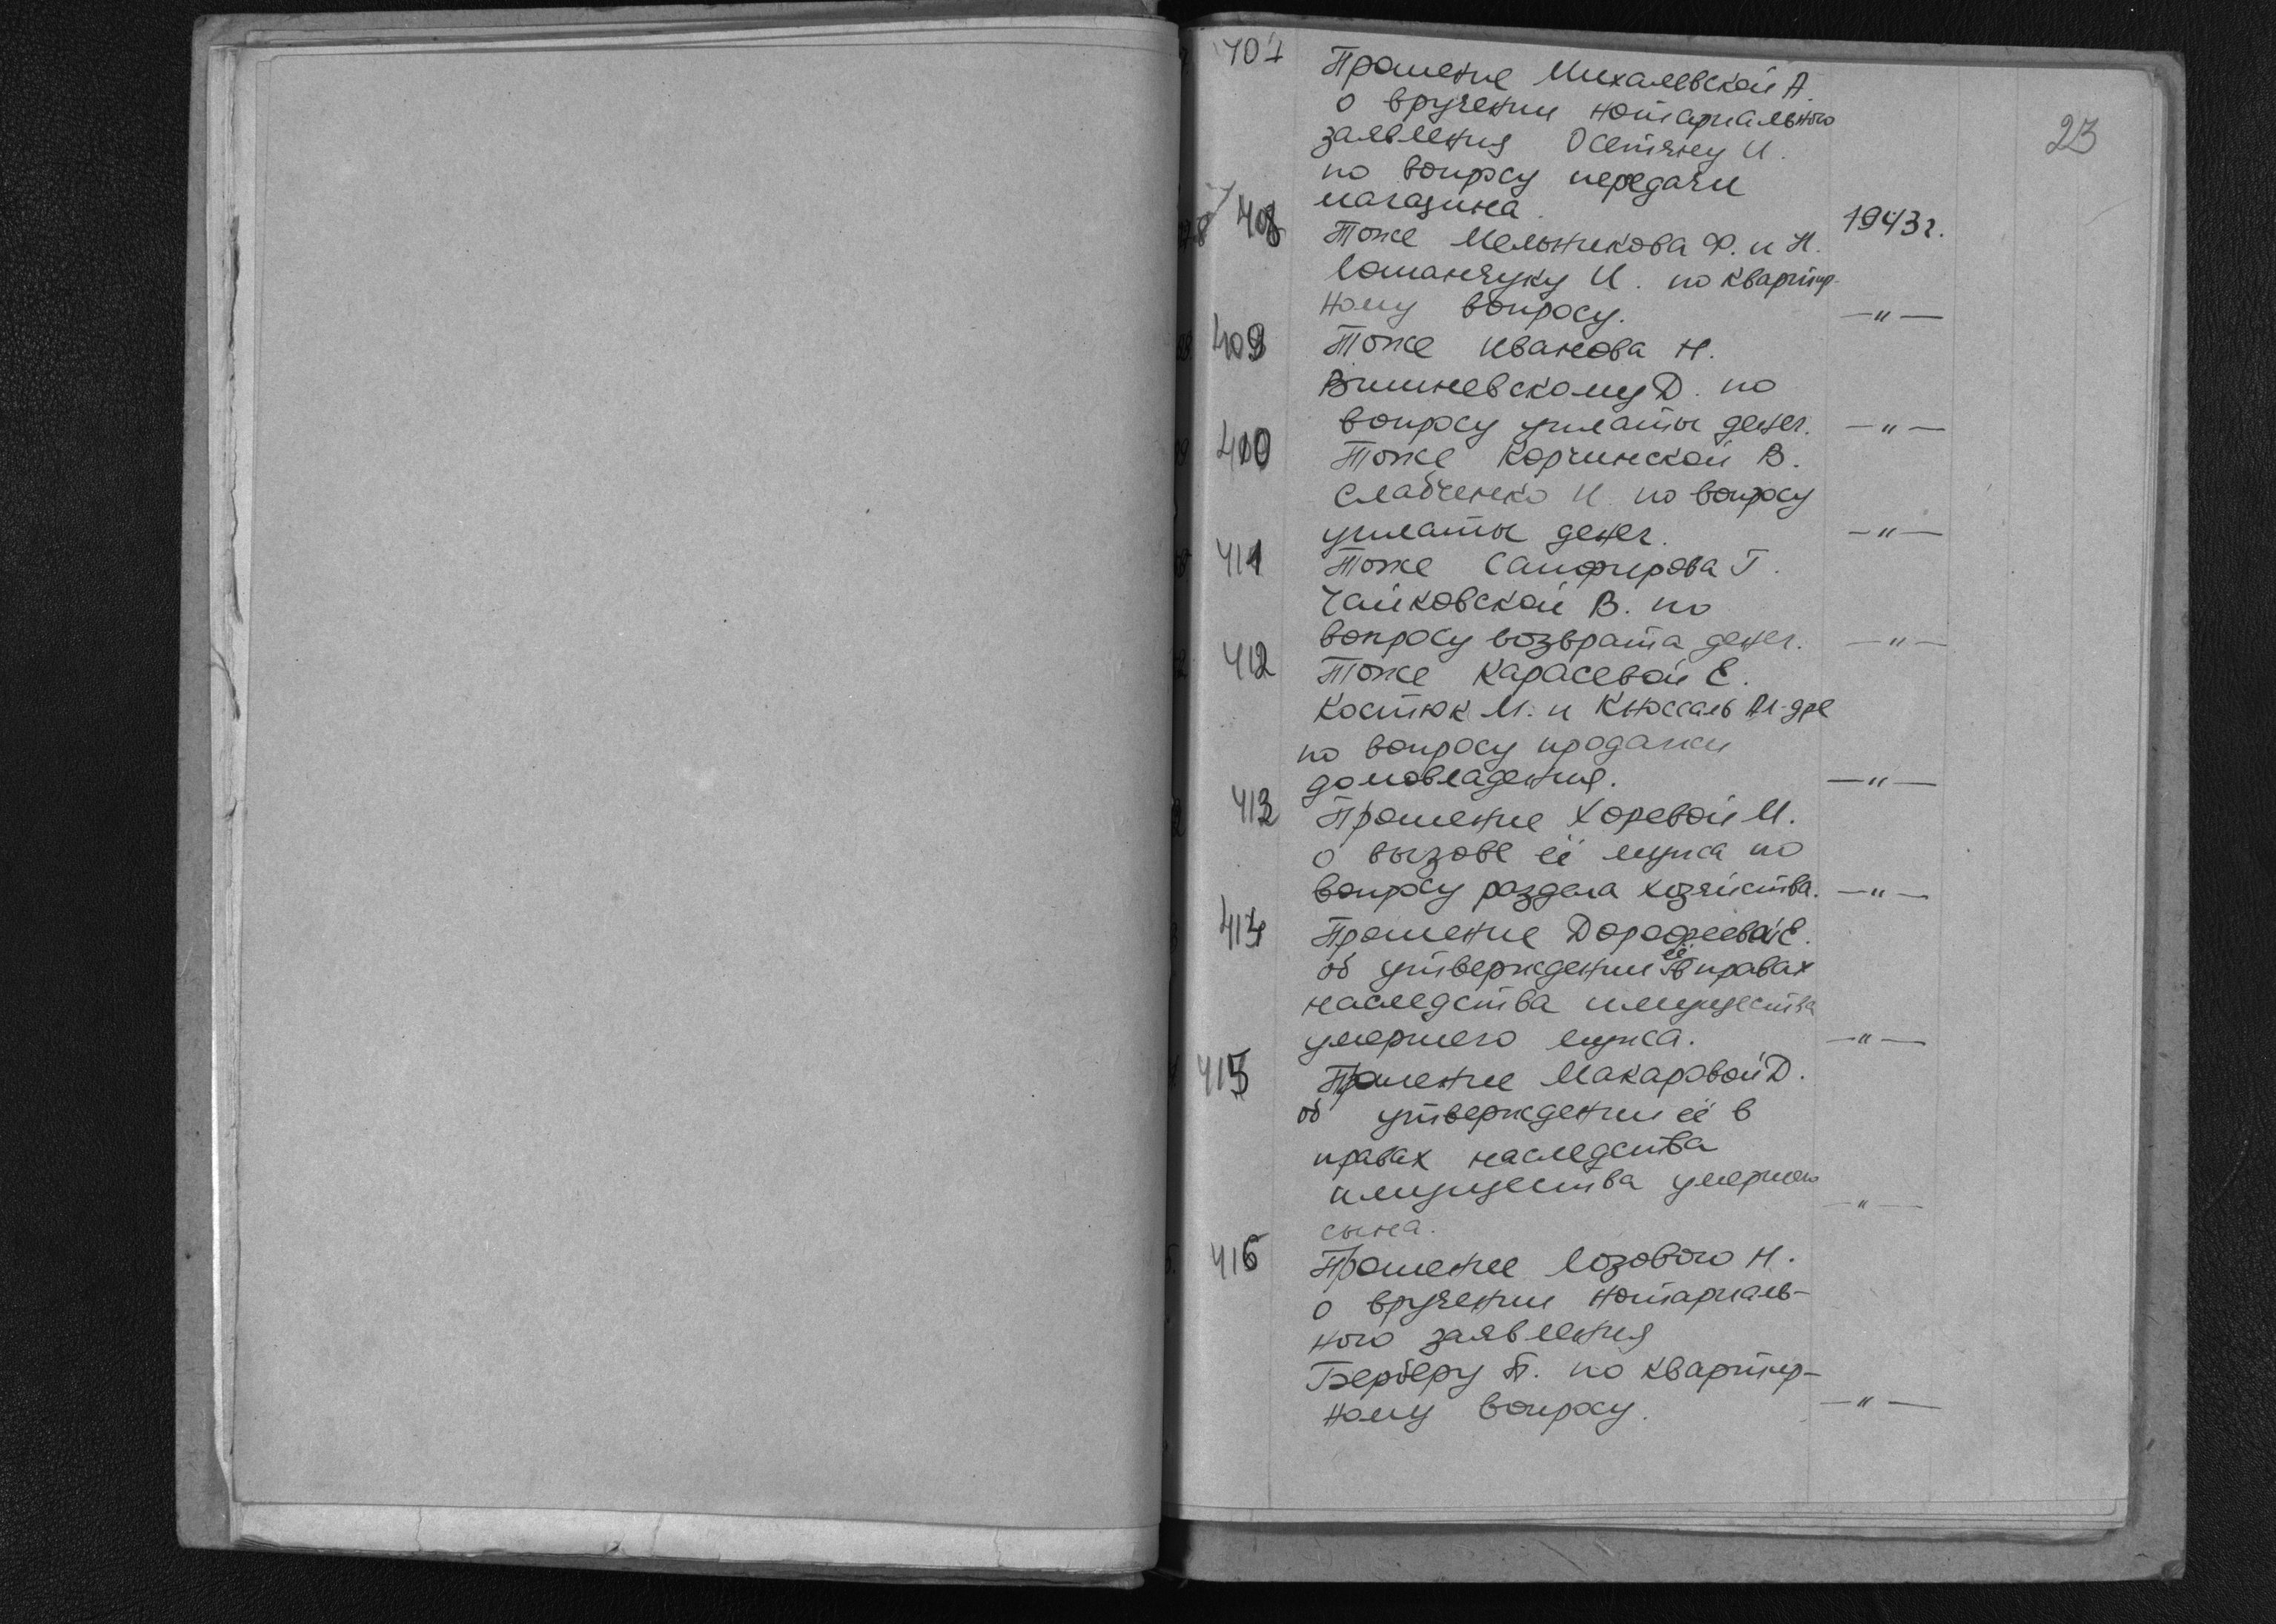 23
407 Прошение Михалевской А.
о вручении нотариального
заявления Осетяну И.
по вопросу передачи
магазина. 1943 г.
408 Тоже Мельникова Ф. и Н.
Романчуку И. по квартир-
ному вопросу. —"—
409 Тоже Иванова Н.
Вишневскому Д. по
вопросу уплаты денег. —"—
410 Тоже Корчинской В.
Слабченко И. по вопросу
уплаты денег. —"—
411 Тоже Сапфирова Г.
Чайковской В. по
вопросу возврата денег. —"—
412 Тоже Карасевой Е.
Костюк М. и Кюссаль Ал-дре
по вопросу продажи
домовладения. —"—
413 Прошение Хоревой М.
о вызове её мужа по
вопросу раздела хозяйства. —"—
414 Прошение Дорофеевой Е.
об утверждении её в правах
наследства имущества
умершего мужа. —"—
415 Прошение Макаровой Д.
об утверждении её в
правах наследства
имущества умершего —"—
сына.
416 Прошение Лозового Н.
о вручении нотариаль-
ного заявления
Берберу П. по квартир-
ному вопросу. —"—